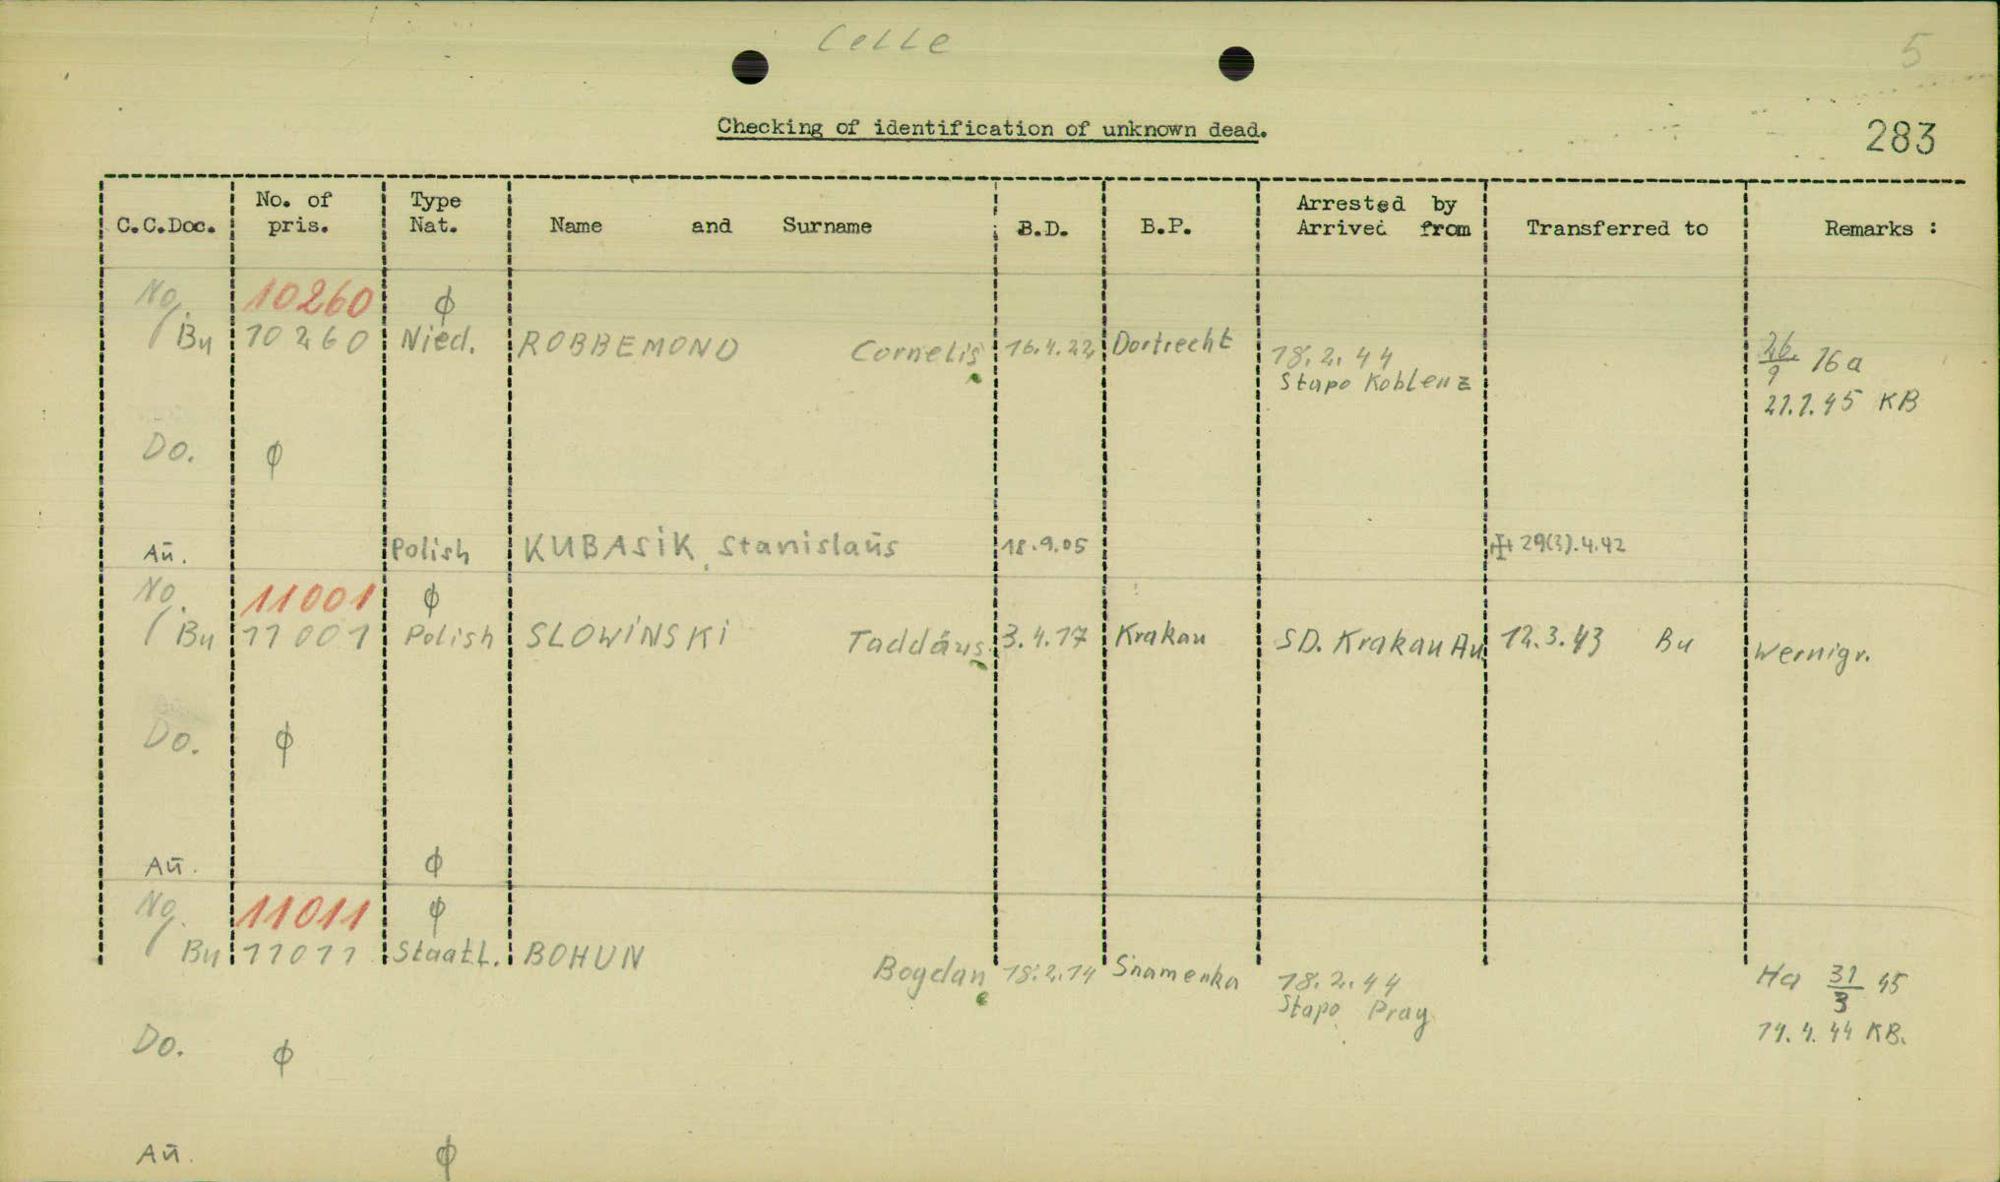 Celle
5
Checking of identification of unknown dead.
283
C.C.Doc. No. of pris. Type Nat. Name and Surname B.D. B.P. Arrested by Arrived from Transferred to Remarks :
No. 10260 ϕ
Bu 10260 Nied. ROBBEMOND Cornelis 16.4.22 Dortrecht 18.2.44 Stapo Koblenz 26./9 16a
21.1.45 KB
Do. ϕ
Aū. Polish KUBASiK, Stanislaūs 18.9.05 29(3).4.42
No. 11001 ϕ
Bu 11001 Polish SLOWiNSKi Taddäus 3.4.17 Krakau SD. Krakau Au. 12.3.43 Bu Wernigr.
Do. ϕ
Aū. ϕ
No. 11011 ϕ
Bu 11011 Staatl. BOHUN Bogdan 18.2.14 Snamenka 18.2.44 Stapo Prag Ha 31/3 45
14.4.44 KB.
Do. ϕ
Aū. ϕ